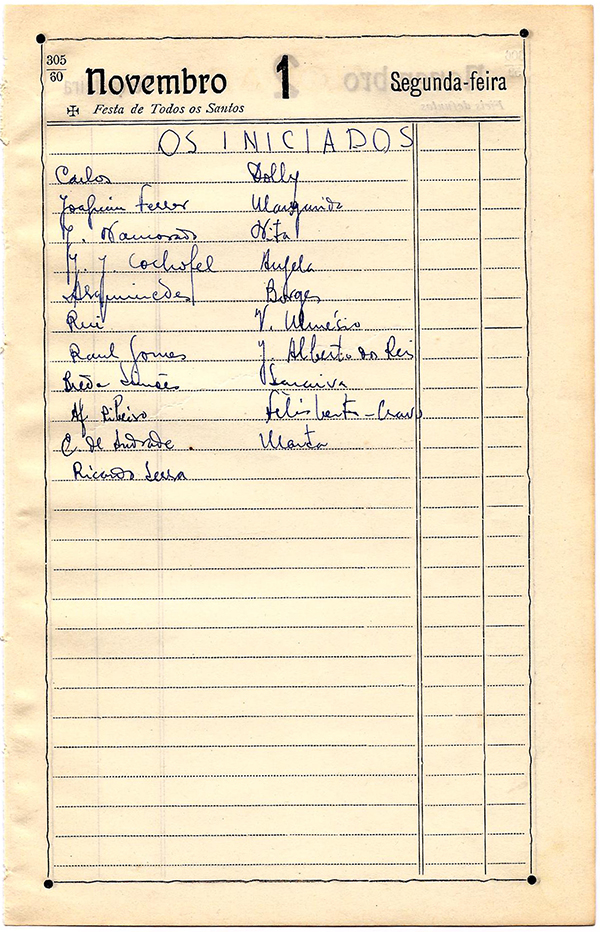 305
60
Novembro 1 Segunda-feira
Festa de Todos os Santos
OS INICIADOS
Carlos Dolly
Joaquim Ferrer Margarida
J. Namorado Nita
J. J. Cochofel Angela
Arquimedes Borges
Rui V. Nemésio
Raul Gomes J. Alberto do Reis
Breda Simões Saraiva
Af Ribeiro Felisberta-Cravo
C. de Andrade Marta
Ricardo Serra